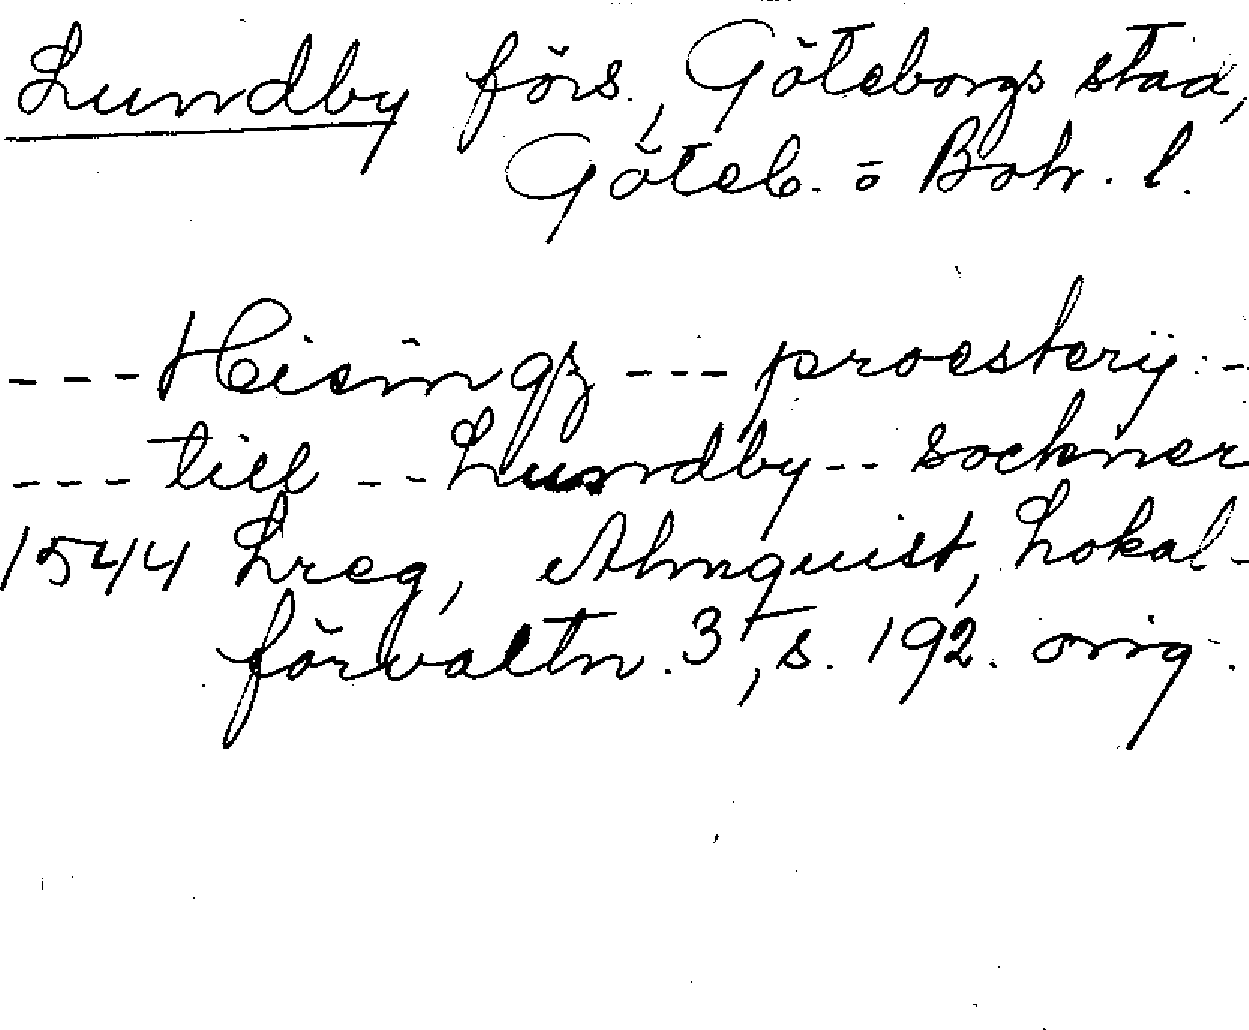 Lundby förs., Göteborgs stad,
Göteb. o Boh. l.
---Hisingz --- proesterij --
--- till -- Lundby -- sockner
1544 Lreg, Almquist, Lokal-
förvaltn. 3, s. 192. orig.